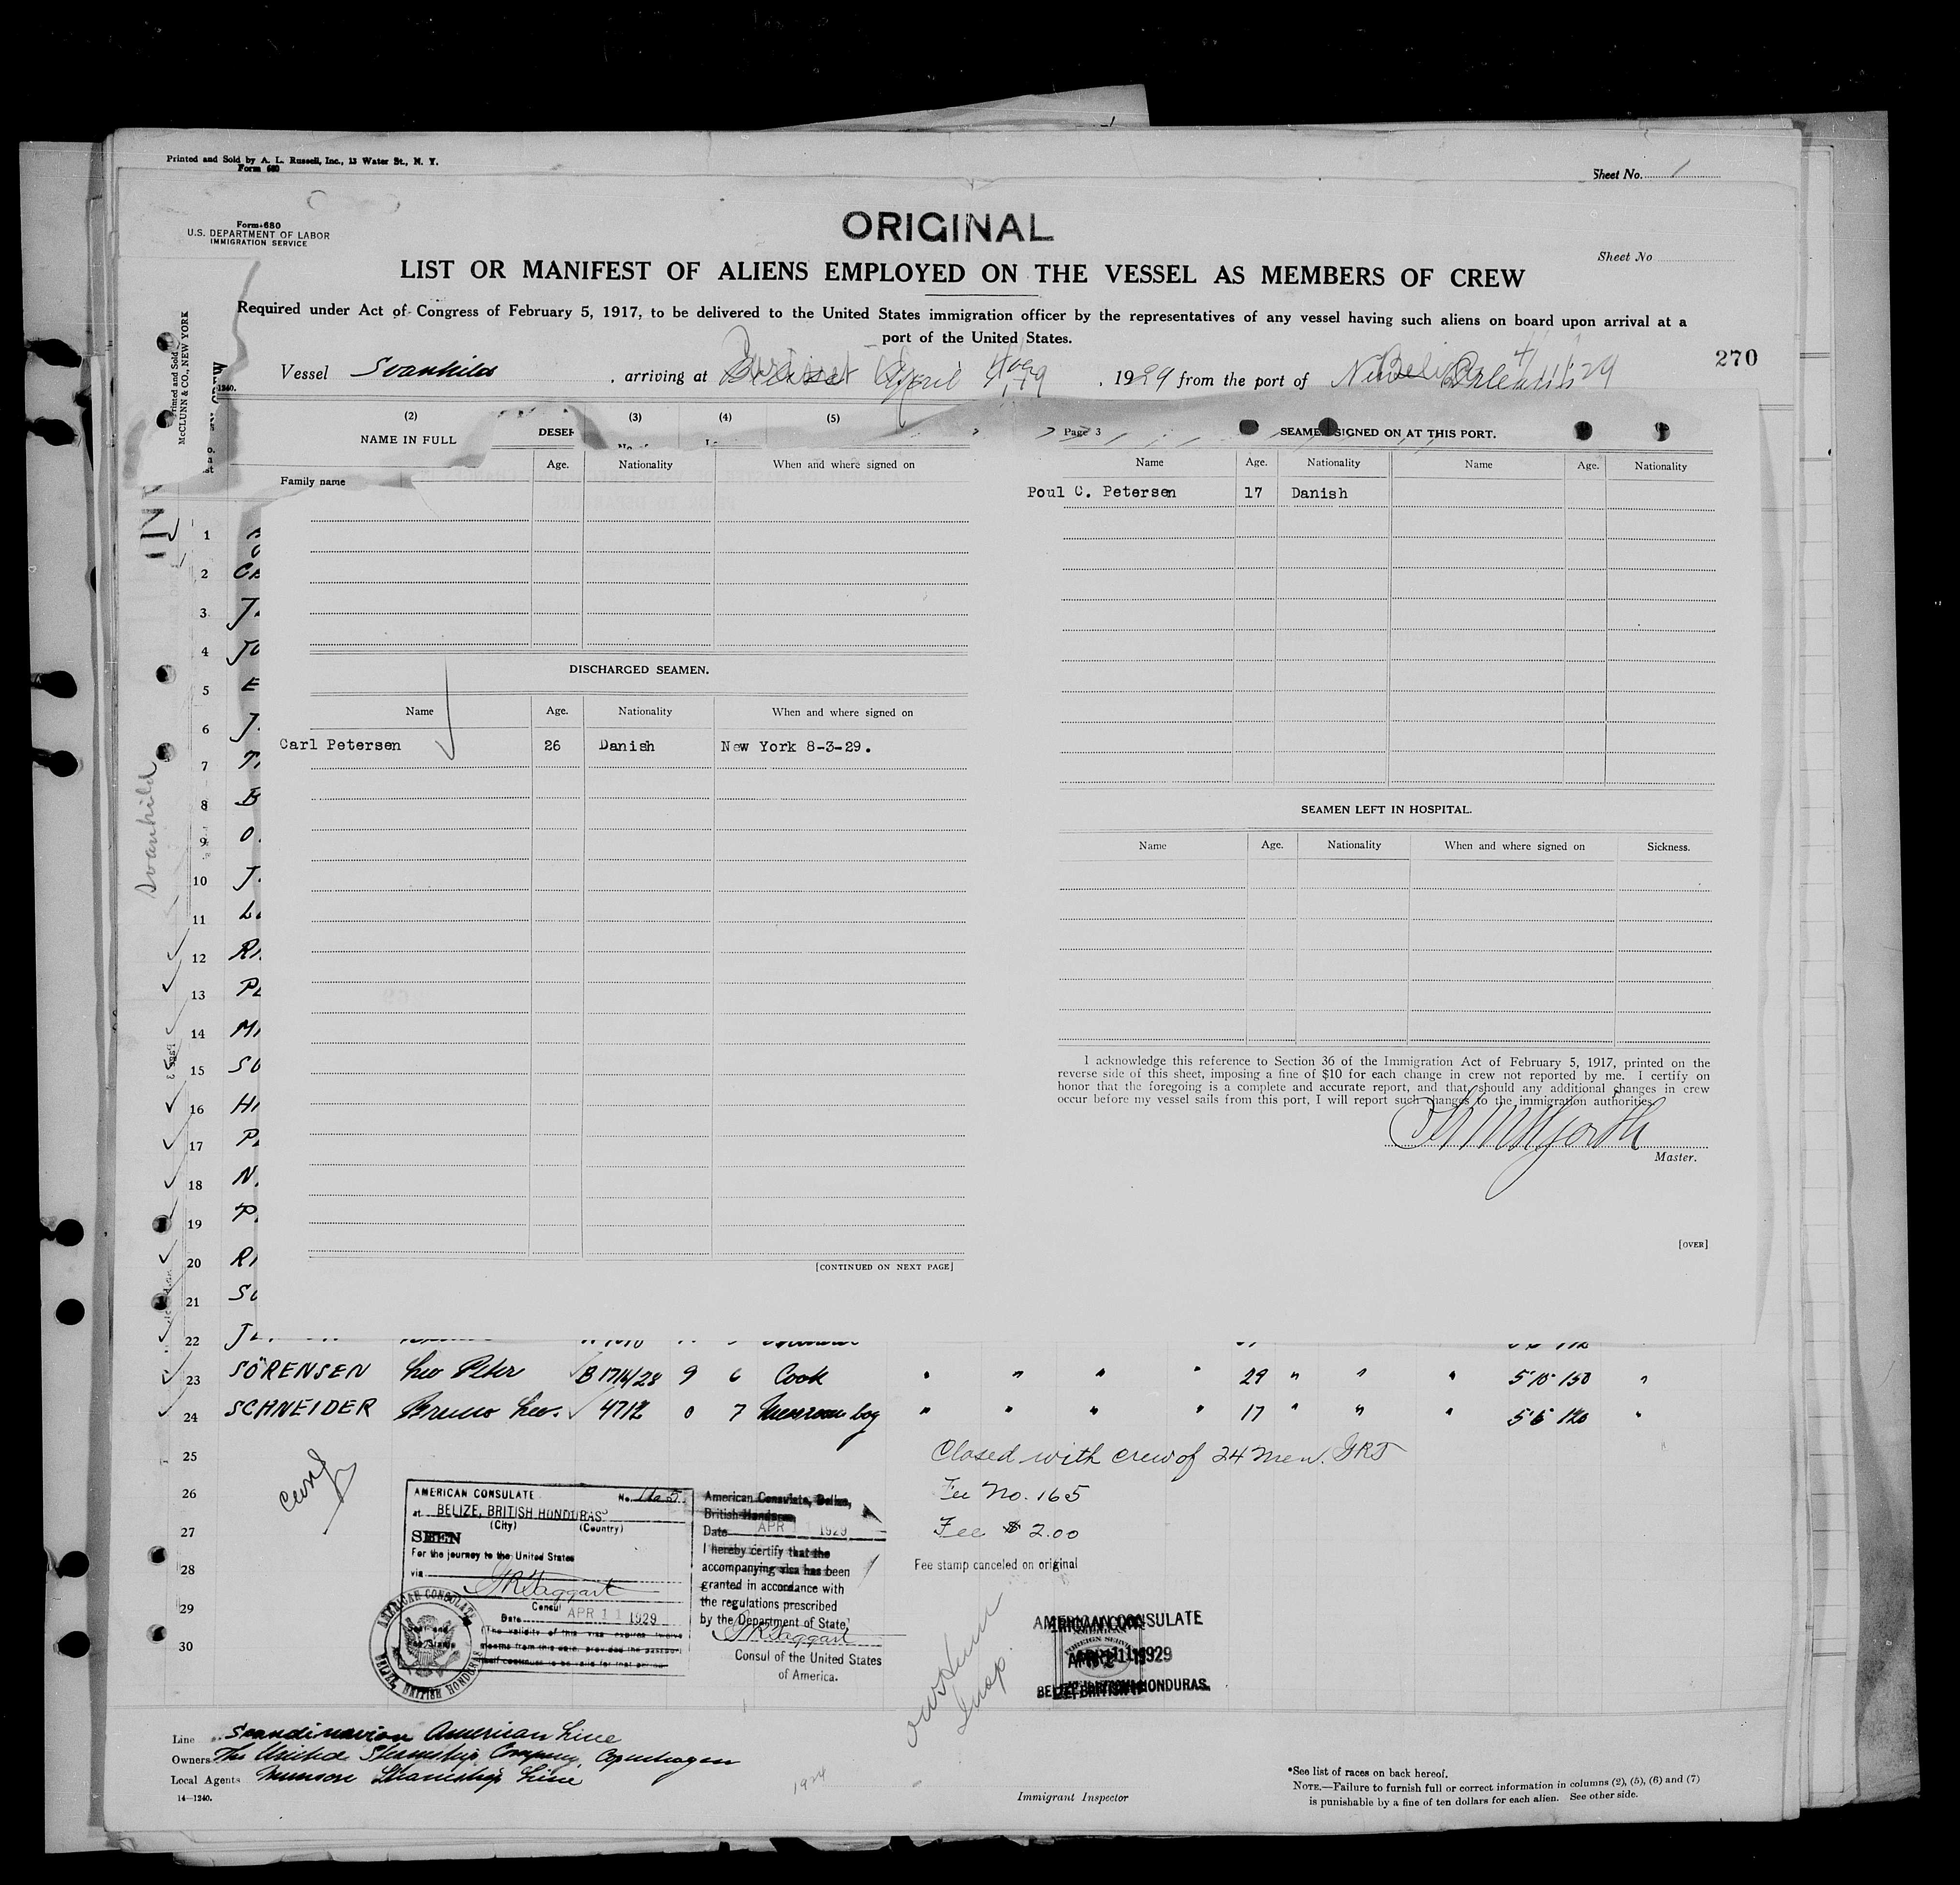 Printed and Sold by A. L. Russell, Inc., 13 Water St., N. Y.
Form 680
Sheet No. 1
Form 680
U.S. DEPARTMENT OF LABOR
IMMIGRATION SERVICE
ORIGINAL
Sheet No
LIST OR MANIFEST OF ALIENS EMPLOYED ON THE VESSEL AS MEMBERS OF CREW
Required under Act of Congress of February 5, 1917, to be delivered to the United States immigration officer by the representatives of any vessel having such aliens on board upon arrival at a
port of the United States.
270
Vessel Svanhild, arriving at April, 1929 from the port of
Printed and Sold
McCLUNN & CO., NEW YORK
1240.
(2) (3) (4) (5)
NAME IN FULL
Family name
Age. Nationality When and where signed on
DISCHARGED SEAMEN.
Name Age. Nationality When and where signed on
Carl Petersen 26 Danish New York 8-3-29.
[CONTINUED ON NEXT PAGE]
Page 3
SEAMEN SIGNED ON AT THIS PORT.
Name Age. Nationality Name Age. Nationality
Poul C. Petersen 17 Danish
SEAMEN LEFT IN HOSPITAL.
Name Age. Nationality When and where signed on Sickness.
I acknowledge this reference to Section 36 of the Immigration Act of February 5, 1917, printed on the
reverse side of this sheet, imposing a fine of $10 for each change in crew not reported by me. I certify on
honor that the foregoing is a complete and accurate report, and that should any additional changes in crew
occur before my vessel sails from this port, I will report such changes to the immigration authorities.
Master.
[OVER]
Svanhild
1
2
3
4
5
6
7
8
9
10
11
12
13
14
15
16
17
18
19
20
21
22
23 SÖRENSEN Leo Peter B 1714/28 9 6 Cook " " " " 29 " " " 5 10 150 "
24 SCHNEIDER Bruno Leo. 4712 0 7 Messroom boy " " " " 17 " " " 5 6 120 "
25
26
27
28
29
30
Closed with crew of 24 men. GRT
Fee No. 165
Fee $ 2.00
Fee stamp canceled on original
AMERICAN CONSULATE No. 165
at BELIZE, BRITISH HONDURAS
(City) (Country)
SEEN
For the journey to the United States
via
GR Taggart
Consul
Date APR 11 1929
The validity of this visa expires twelve
months from this date, provided the passport
itself continues to be valid for that period
AMERICAN CONSULATE
BELIZE, BRITISH HONDURAS
American Consulate, Belize,
British Honduras
Date APR 11 1929
I hereby certify that the
accompanying visa has been
granted in accordance with
the regulations prescribed
by the Department of State,
GR Taggart
Consul of the United States
of America.
AMERICAN CONSULATE
APR 11 1929
BELIZE, BRITISH HONDURAS.
Insp.
Line Scandinavian American Line
Owners The United Steamship Company, Copenhagen
Local Agents Munson Steamship Line
14—1240.
Immigrant Inspector
*See list of races on back hereof.
NOTE.—Failure to furnish full or correct information in columns (2), (5), (6) and (7)
is punishable by a fine of ten dollars for each alien. See other side.